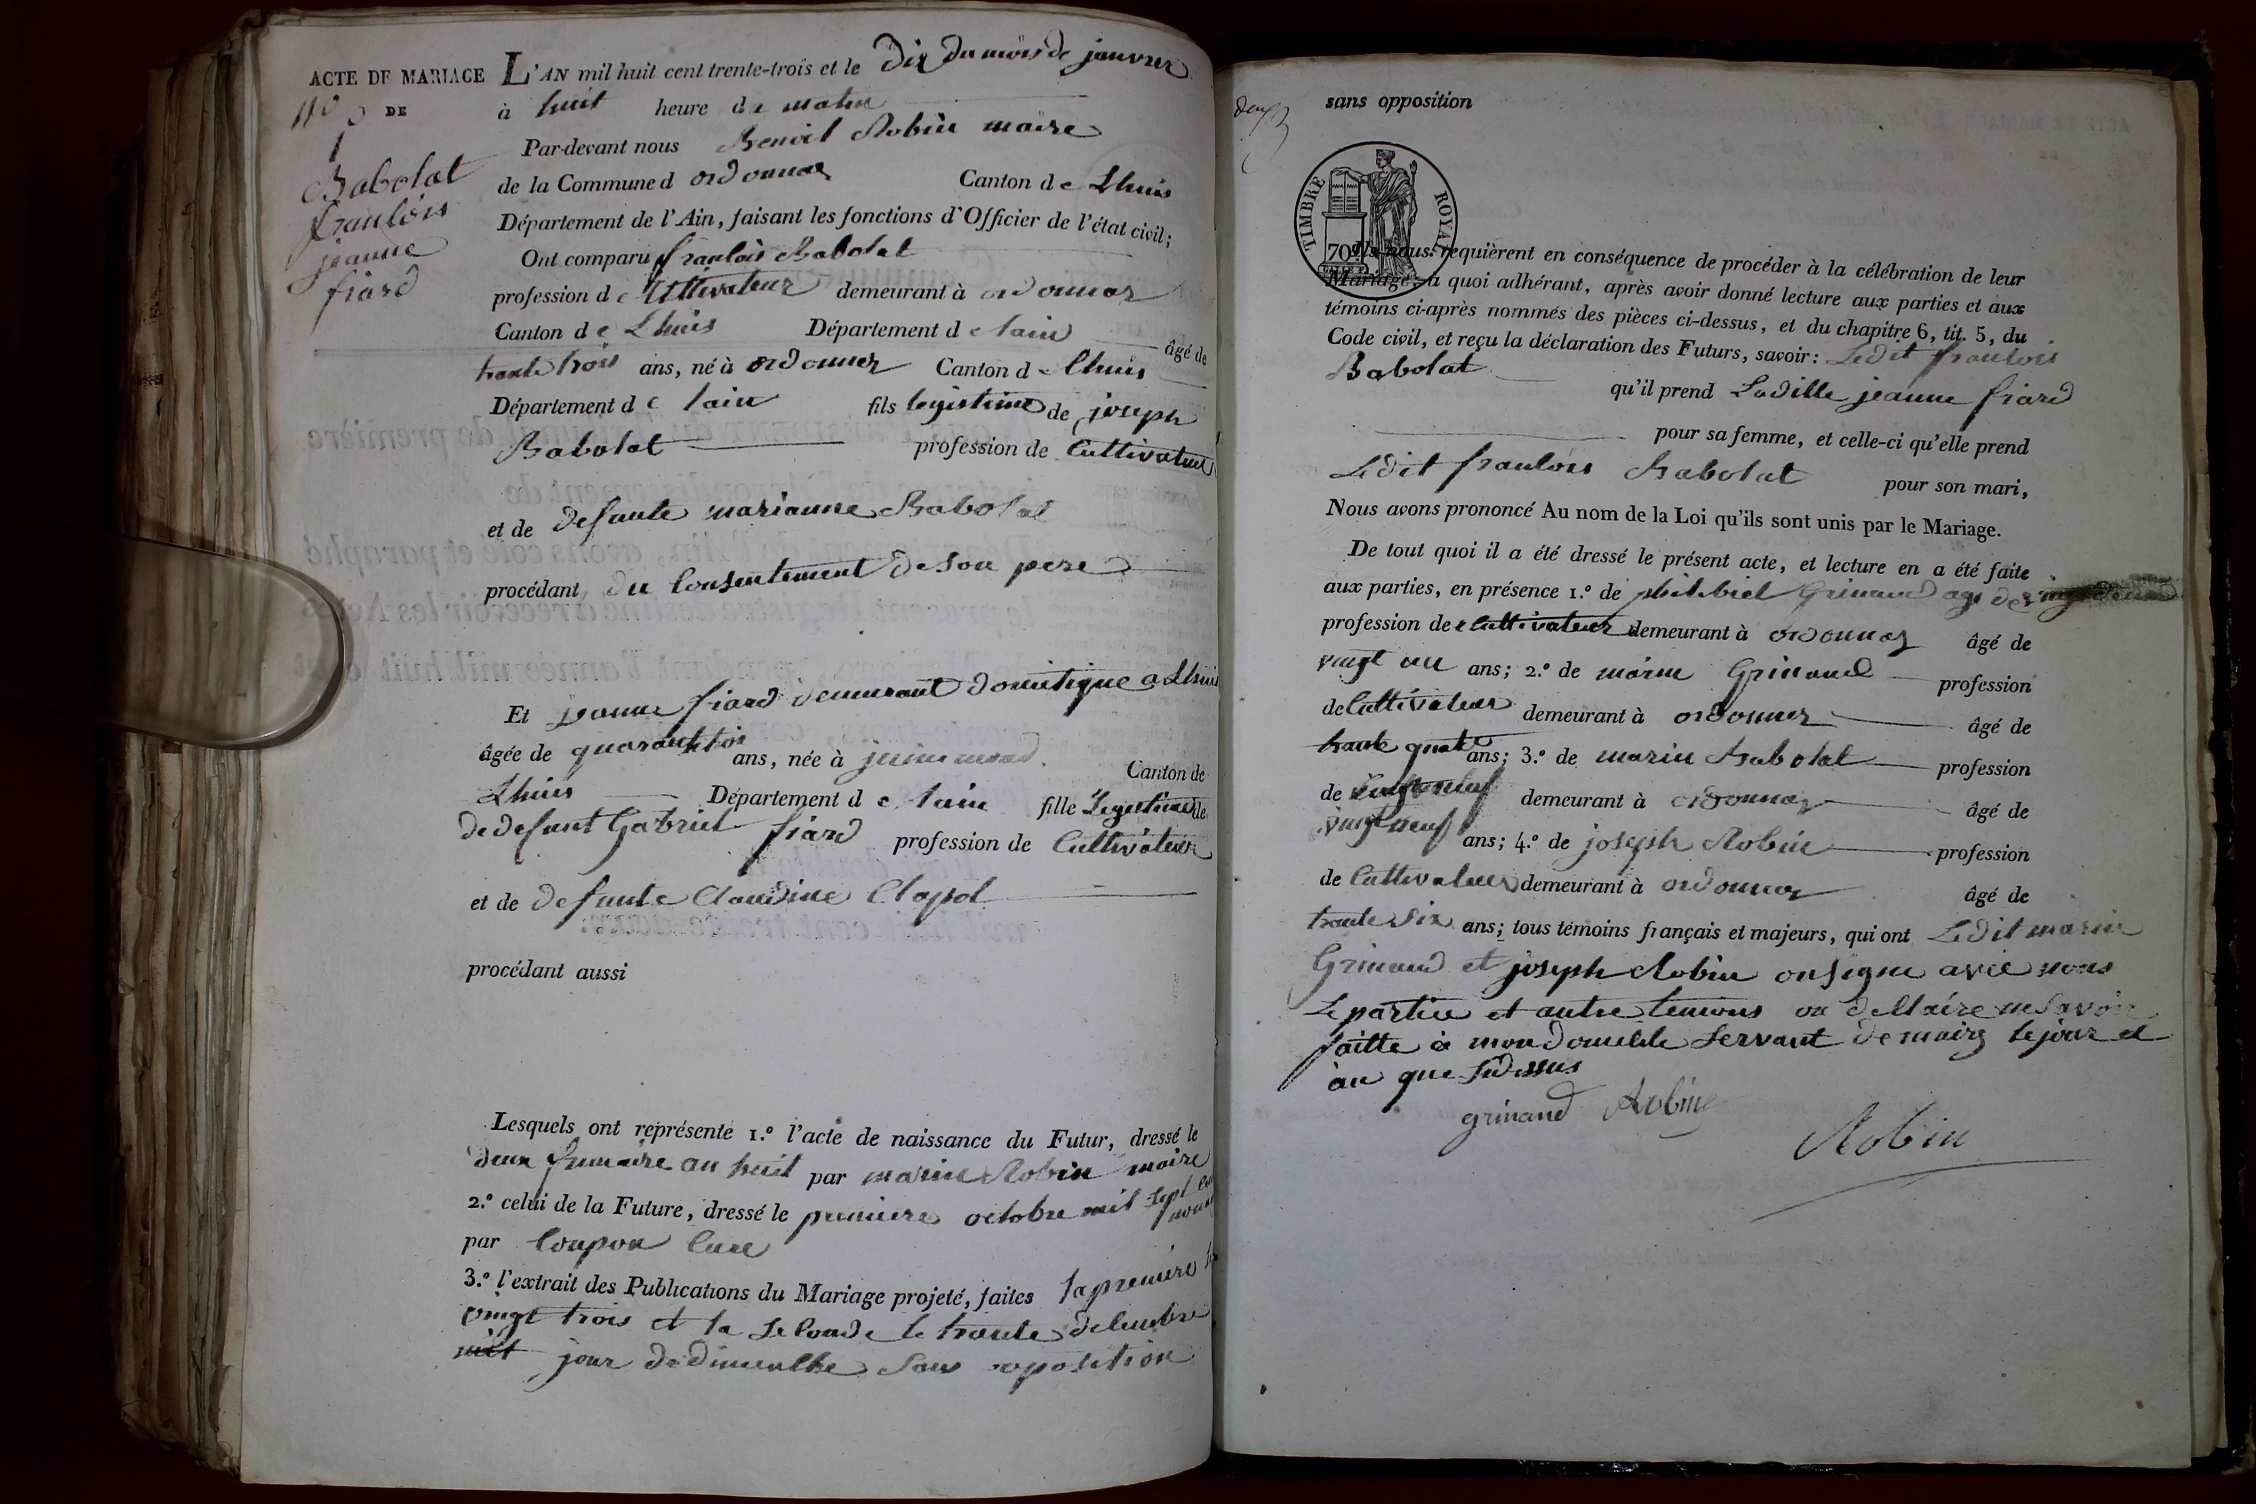 ACTE DE MARIAGE
N.o
DE
1
Babolat
francois
jeanne
fiard
L'AN mil huit cent trente-trois et le dix du mois de janvier
à huit heure de matin
Par-devant nous Benoit Robin maire
de la Commune d ordonnaz Canton de Lhuis
Département de l'Ain, faisant les fonctions d'Officier de l'état civil;
Ont comparu francois Babolat
profession de Cultivateur demeurant à ordonnaz
Canton de Lhuis Département de lain âgé de
trante trois ans, né à ordonnaz Canton de Lhuis
Département de lain fils legistime de joseph
Babolat profession de Cultivateur
et de defunte marianne Babolat
procédant du Consentement de son pere
Et jeanne fiard demeurant domitique a Lhuis
âgée de quarante trois ans, née à Canton de
Lhuis Département de lain fille legistime de
de defunt Gabriel fiard profession de Cultivateur
et de defunte Claudine Clapot
procédant aussi
Lesquels ont représenté 1.º l'acte de naissance du Futur, dressé le
deux frimaire an huit par marin Robin maire
2.º celui de la Future, dressé le premiere octobre mil sept cent
par Coupon Cure
3.º l'extrait des Publications du Mariage projeté, faites la premiere le
vingt trois et la seconde le trante decembre
mil jour de dimenche sans oposition
deux
sans opposition
TIMBRE ROYAL
70
Ils nous requièrent en conséquence de procéder à la célébration de leur
Mariage, a quoi adhérant, après avoir donné lecture aux parties et aux
témoins ci-après nommés des pièces ci-dessus, et du chapitre 6, tit. 5, du
Code civil, et reçu la déclaration des Futurs, savoir: Ledit francois
Babolat qu'il prend Laditte jeanne fiard
pour sa femme, et celle-ci qu'elle prend
Ledit francois Babolat pour son mari,
Nous avons prononcé Au nom de la Loi qu'ils sont unis par le Mariage.
De tout quoi il a été dressé le présent acte, et lecture en a été faite
aux parties, en présence 1.º de philebiel Grinand age de
profession de Cultivateur demeurant à ordonnaz âgé de
vingt un ans; 2.º de marin Grinand profession
de Cultivateur demeurant à ordonnaz âgé de
trante quatre ans; 3.º de marin Babolat profession
de vingt neuf demeurant à ordonnaz âgé de
vingt neuf ans; 4.º de joseph Robin profession
de Cultivateur demeurant à ordonnaz âgé de
trante six ans; tous témoins français et majeurs, qui ont Ledit marin
Grinand et joseph Robin on signe avec nous
Le partie et autre temions on declaire ne savoir
faitte à mon domicile servant de mairy le jour et
an que sudessus
grinand Robin
Robin